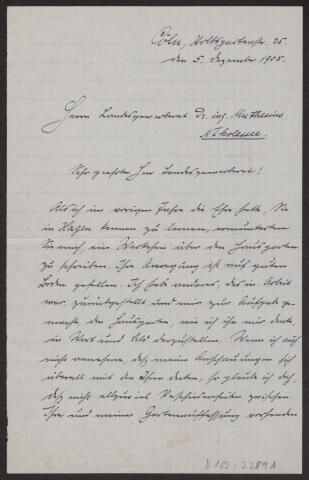 Cöln, Volksgartenstr. 25.
den 5. Dezember 1905.
Herrn Landesgewerberat Dr. ing. Muthesius
Nikolassee.
Sehr geehrter Herr Landesgewerberat!
Als ich im vorigen Jahre die Ehre hatte, Sie
in Hagen kennen zu lernen, ermunterten
Sie mich, ein Werkchen über den Hausgarten
zu schreiben. Ihre Anregung ist auf guten
Boden gefallen. Ich habe anderes, das in Arbeit
war, zurückgestellt und mir zur Aufgabe ge-
macht, den Hausgarten, wie ich ihn mir denke,
in Wort und Bild darzustellen. Wenn ich auch
nicht annehme, daß meine Anschauungen sich
überall mit den Ihren decken, so glaube ich doch,
daß nicht allzuviel Verschiedenheiten zwischen
Ihrer und meiner Gartenauffassung vorhanden
D 102-2289 A